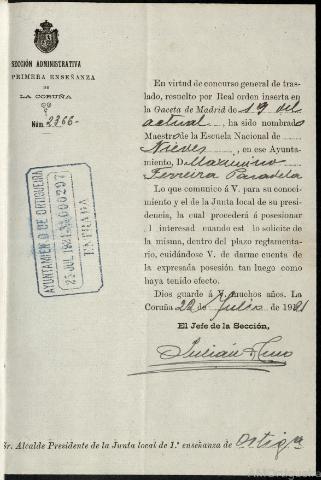 SECCIÓN ADMINISTRATIVA
PRIMERA ENSEÑANZA
DE
LA CORUÑA
Núm. 2366-
En virtud de concurso general de tras-
lado, resuelto por Real orden inserta en
la Gaceta de Madrid de 19 del
actual, ha sido nombrado
Maestro de la Escuela Nacional de
Nieves, en ese Ayunta-
miento, D. Maximino
Ferreira Paradela
Lo que comunico á V. para su conocimiento
y el de la Junta local de su pre-
sidencia, la cual procederá á posesionar
l interesad cuando est lo solicite de
la misma, dentro del plazo reglamenta-
rio, cuidándose V. de darme cuenta de
la expresada posesión tan luego como
haya tenido efecto.
Dios guarde á V. muchos años. La
Coruña 22 de Julio de 1921
El Jefe de la Sección,
Julián
AYUNTAMIENTO DE ORTIGUEIRA
23 JUL 1921 ★000297
ENTRADA
Sr. Alcalde Presidente de la Junta local de 1.ª enseñanza de Ortigª
AMOrtigueira